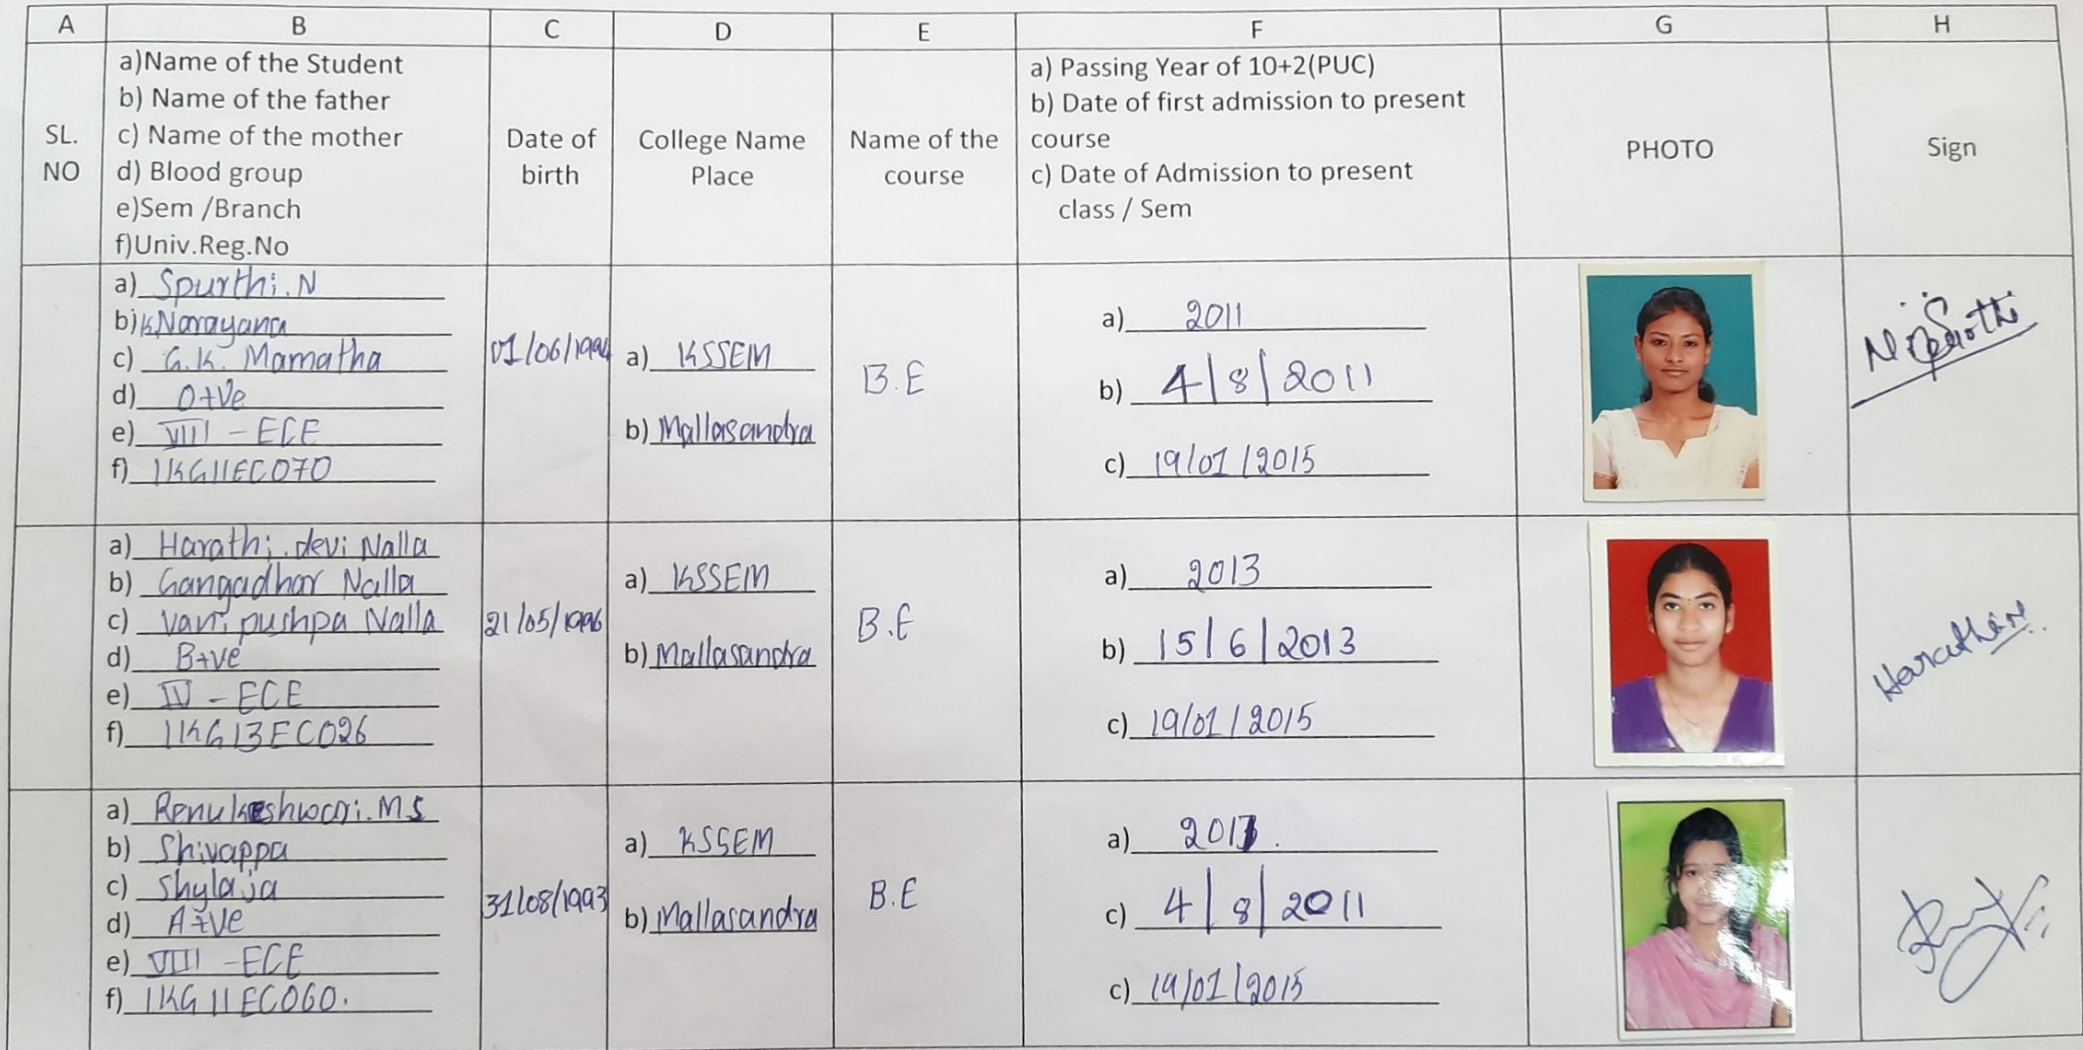 A B C D E F G H
SL.
NO
a)Name of the Student
b) Name of the father
c) Name of the mother
d) Blood group
e)Sem /Branch
f)Univ.Reg.No
Date of
birth
College Name
Place
Name of the
course
a) Passing Year of 10+2(PUC)
b) Date of first admission to present
course
c) Date of Admission to present
class / Sem
PHOTO
Sign
a) Spurthi.N
b) K Narayana
c) G.K. Mamatha
d) O+Ve
e) VIII - ECE
f) 1KG11EC070
01/06/1994
a) KSSEM
b) Mallasandra
B.E
a) 2011
b) 4/8/2011
c) 19/01/2015
a) Harathi.devi Nalla
b) Gangadhar Nalla
c) Vani pushpa Nalla
d) B+ve
e) IV - ECE
f) 1KG13EC026
21/05/1996
a) KSSEM
b) Mallasandra
B.E
a) 2013
b) 15/6/2013
c) 19/01/2015
Harathi N.
a) Renukeshwari.M.S
b) Shivappa
c) Shylaja
d) A+Ve
e) VIII - ECE
f) 1KG11EC060.
31/08/1993
a) KSSEM
b) Mallasandra
B.E
a) 2011.
c) 4/8/2011
c) 19/01/2015